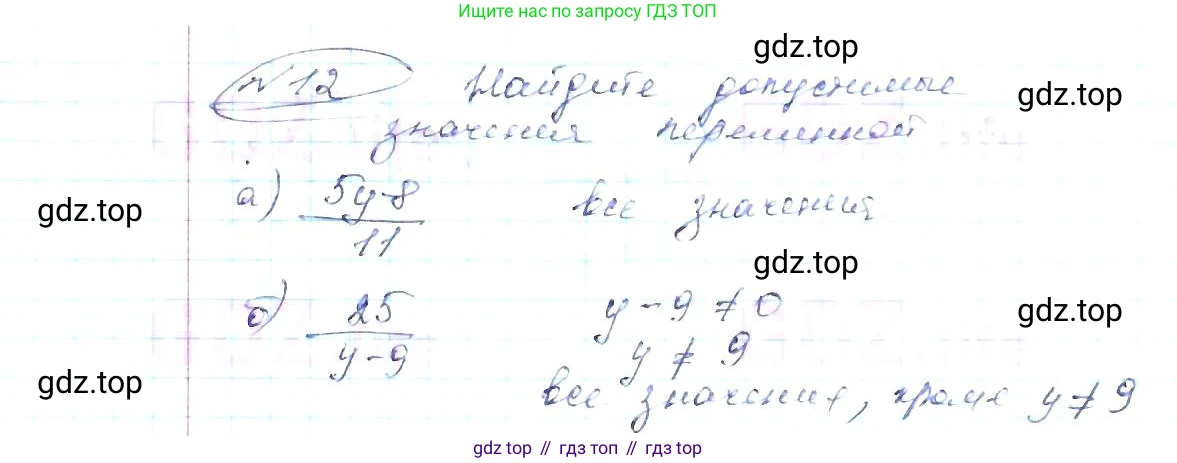 Ищите нас по запросу ГДЗ ТОП
gdz.top
№ 12 Найдите допустимые
gdz.top
значения переменной
а) 5y-8 / 11 все значения
gdz.top
gdz.top
б) 25 / y-9 y-9 ≠ 0
gdz.top
y ≠ 9
gdz.top
все значения, кроме y ≠ 9
gdz top // гдз топ // гдз top